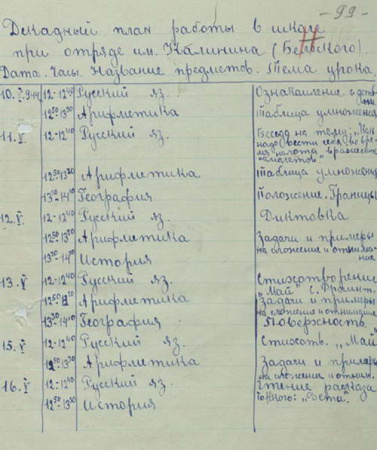 -99-
Декадный план работы в школе
при отряде им. Калинина (Бельского).
Дата. Часы. Название предметов. Тема урока
10.V.944 12-12⁴⁰ Русский яз. Ознакомление с детьми.
12⁵⁰-13³⁰ Арифметика Таблица умножения
11.V. 12-12⁴⁰ Русский яз. Беседа на тему: „Как
надо вести себя во вре-
мя налёта вражеских
самолётов."
12⁵⁰-13³⁰ Арифметика Таблица умножения
13³⁰-14¹⁰ География Положение. Границы
12.V. 12-12⁴⁰ Русский яз. Диктовка
12⁵⁰-13³⁰ Арифметика Задачи и примеры
на сложение и отнима-
ние
13³⁰-14¹⁰ История
13.V 12-12⁴⁰ Русский яз. Стихотворение
„Май"
12⁵⁰-13³⁰ Арифметика Задачи и примеры
на сложение и отнимание
13³⁰-14¹⁰ География. Поверхность.
15.V 12-12⁴⁰ Русский яз. „Май"
12⁵⁰-13³⁰ Арифметика Задачи и примеры
на сложение и отним.
16.V 12-12⁴⁰ Русский яз. Чтение рассказа
12⁵⁰-13³⁰ История